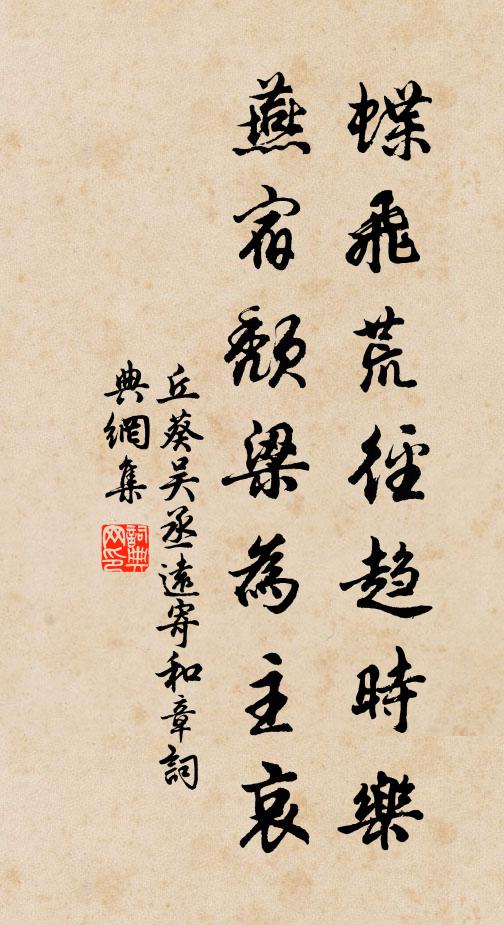 蝶飛荒徑趋時樂
燕宿頹梁為主哀
丘葵吴丞遠寄和章詞
典網集
詞典網印